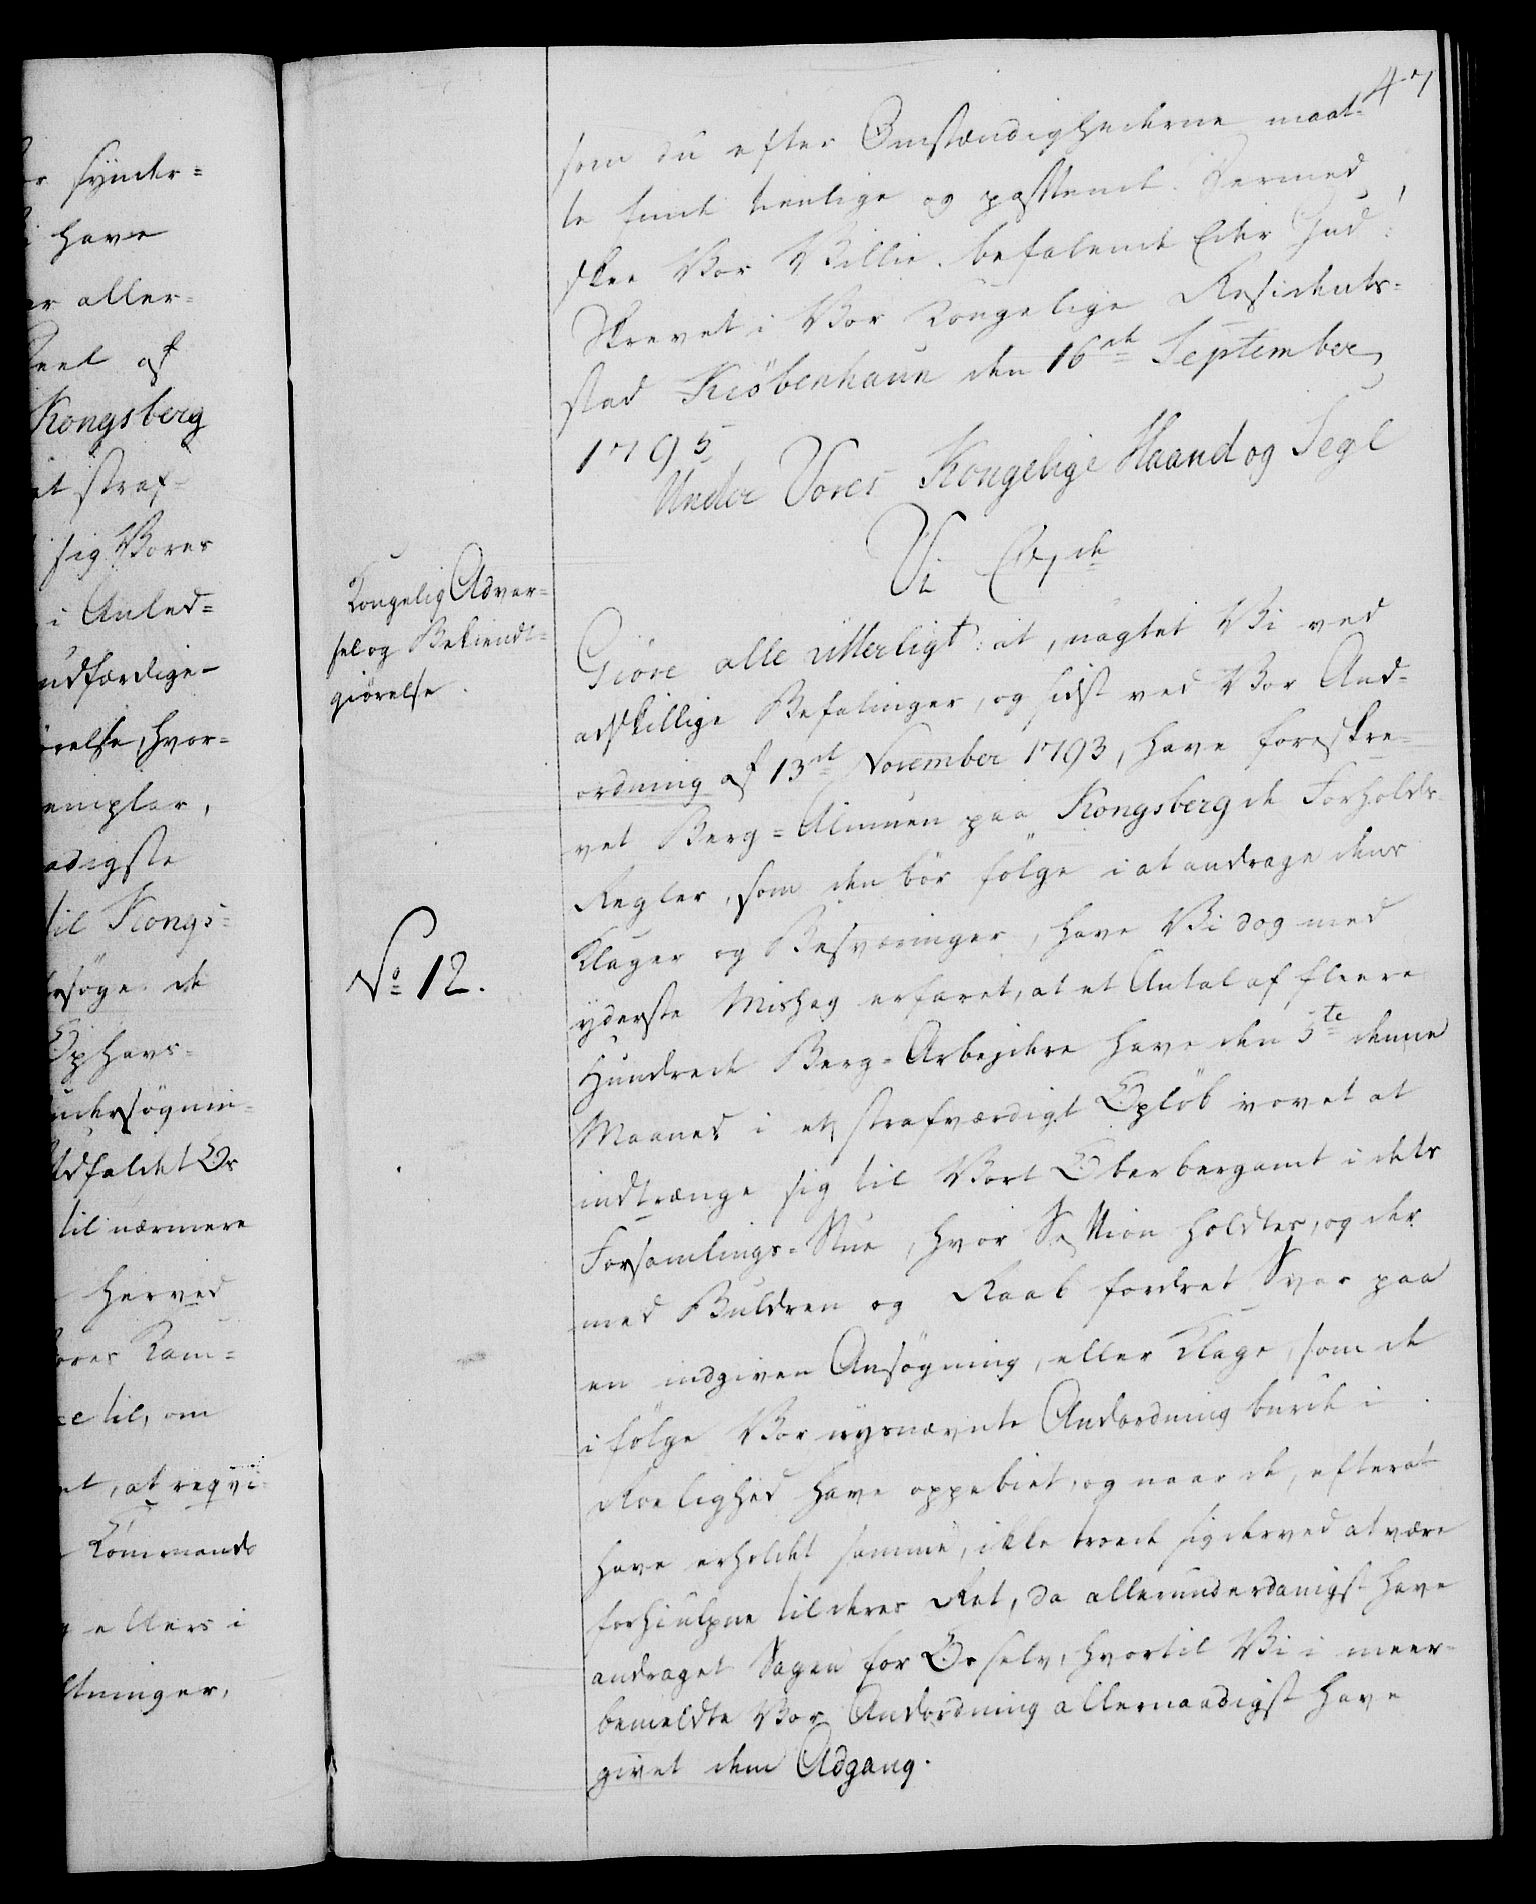 47
som du efter Omstændighederne maat-
te finde tienlige og passende. Dermed
skee Vor Villie. befalende Eder Gud!
Skrevet i Vor Kongelige Residents-
stad Kiöbenhaun den 16de September
1795
Under Vores Kongelige Haand og Segl
Vi C. 7de
Kongelig Advar-
sel og Bekiendt-
giörelse.
Giöre alle vitterligt: at, uagtet Vi ved
adskillige Befalinger, og sidst ved Vor And-
ordning af 13de November 1793, have foreskre-
vet Berg-Almuen paa Kongsberg de Forholds-
Regler, som den bör fölge i at andrage dens
Klager og Besværinger, have Vi dog med
No 12.
yderste Mishag erfaret, at et Antal af fleere
Hundrede Berg-Arbejdere have den 5te denne
Maaned i et strafværdigt Oplöb vovet at
indtrænge sig til Vort Oberbergamt i dets
Forsamlings-Stue, hvor Session holdtes, og der
med Buldren og Raab fordret Svar paa
en indgiven Ansögning, eller Klage, som de
i fölge Vor nysnævnte Andordning burde i
Roelighed have oppebiet, og naar de, efterat
have erholdet samme, ikke troede sig derved at være
forhiulpne til deres Ret, da allerunderdanigst have
andraget Sagen for Os selv, hvortil Vi i meer-
bemeldte Vor Andordning allernaadigst have
givet dem Adgang.
synder=
have
er aller=
Deel af
Kongsberg
straf-
sig Vores
i Anled=
udfærdige-
örelse, hvor-
emplar,
aadigste
til Kongs=
rsöge de
Ophavs-
undersögnin-
Udfaldet Os
til nærmere
herved
Vores Kam=
til, om
et, at reqvi-
Commando
ellers i
ltninger,